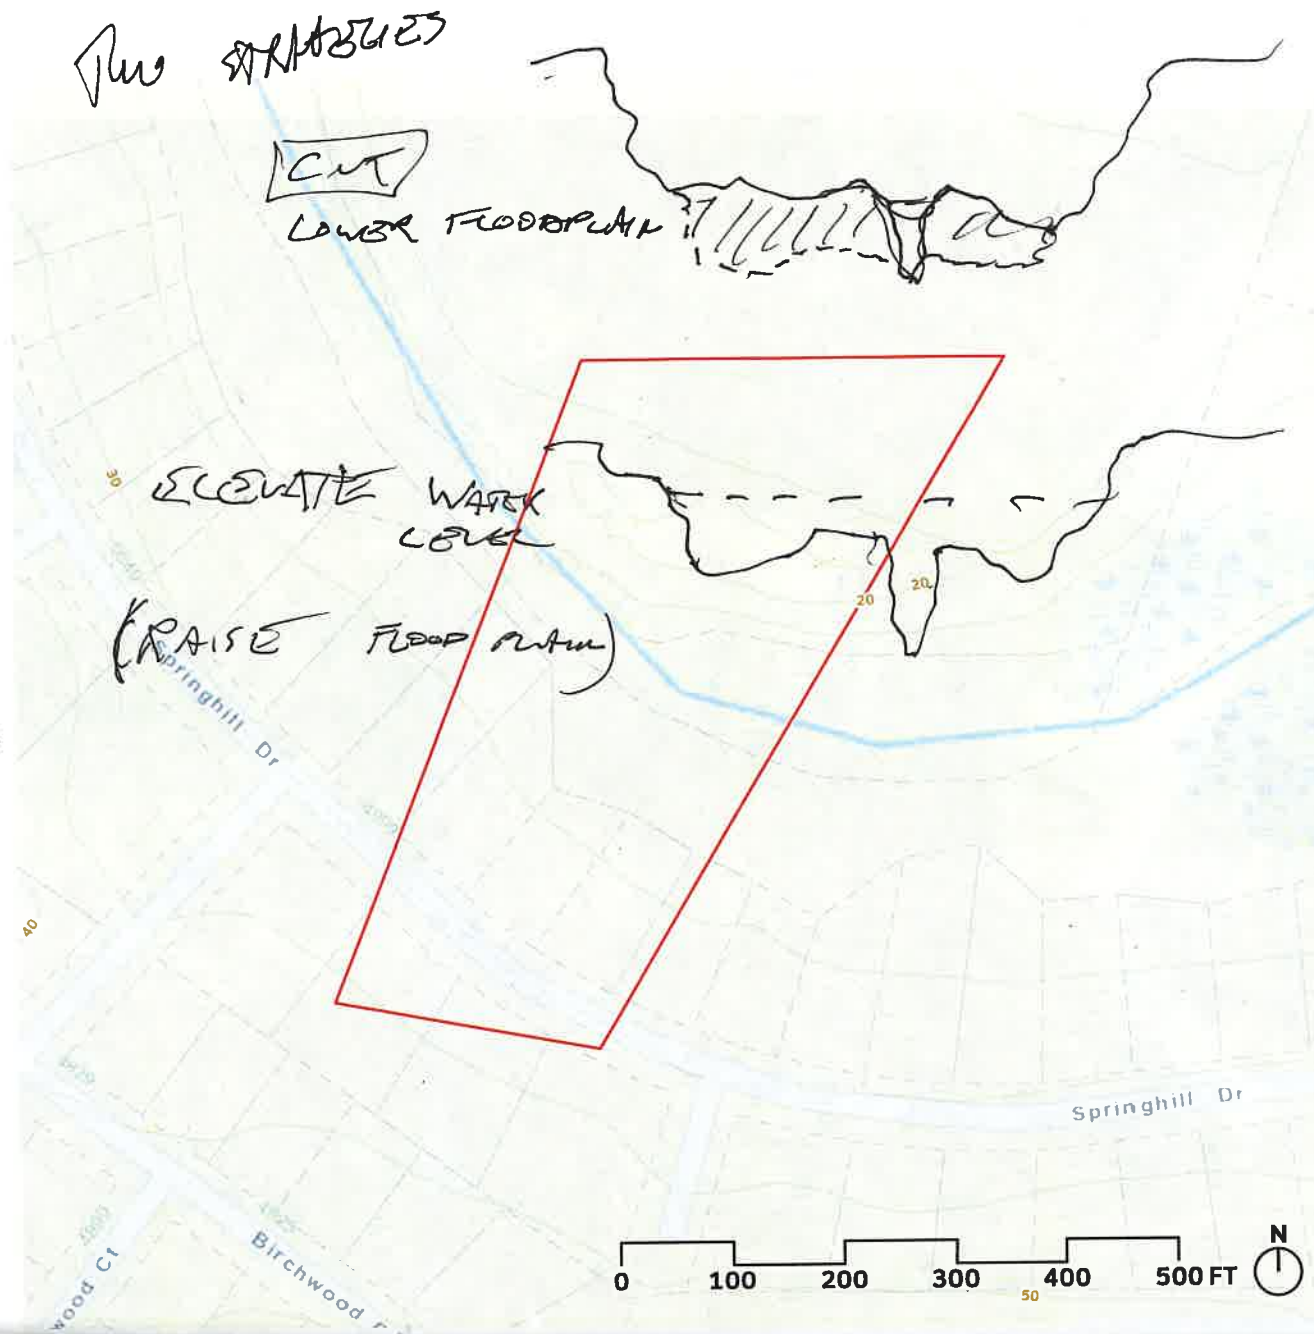 Two STRATEGIES
CUT
LOWER FLOODPLAIN
ELEVATE WATER
LEVEL
(RAISE FLOOD PLAIN)
30
20
20
Springhill Dr
40
Springhill Dr
Birchwood
wood Ct
0 100 200 300 400 500 FT
N
50